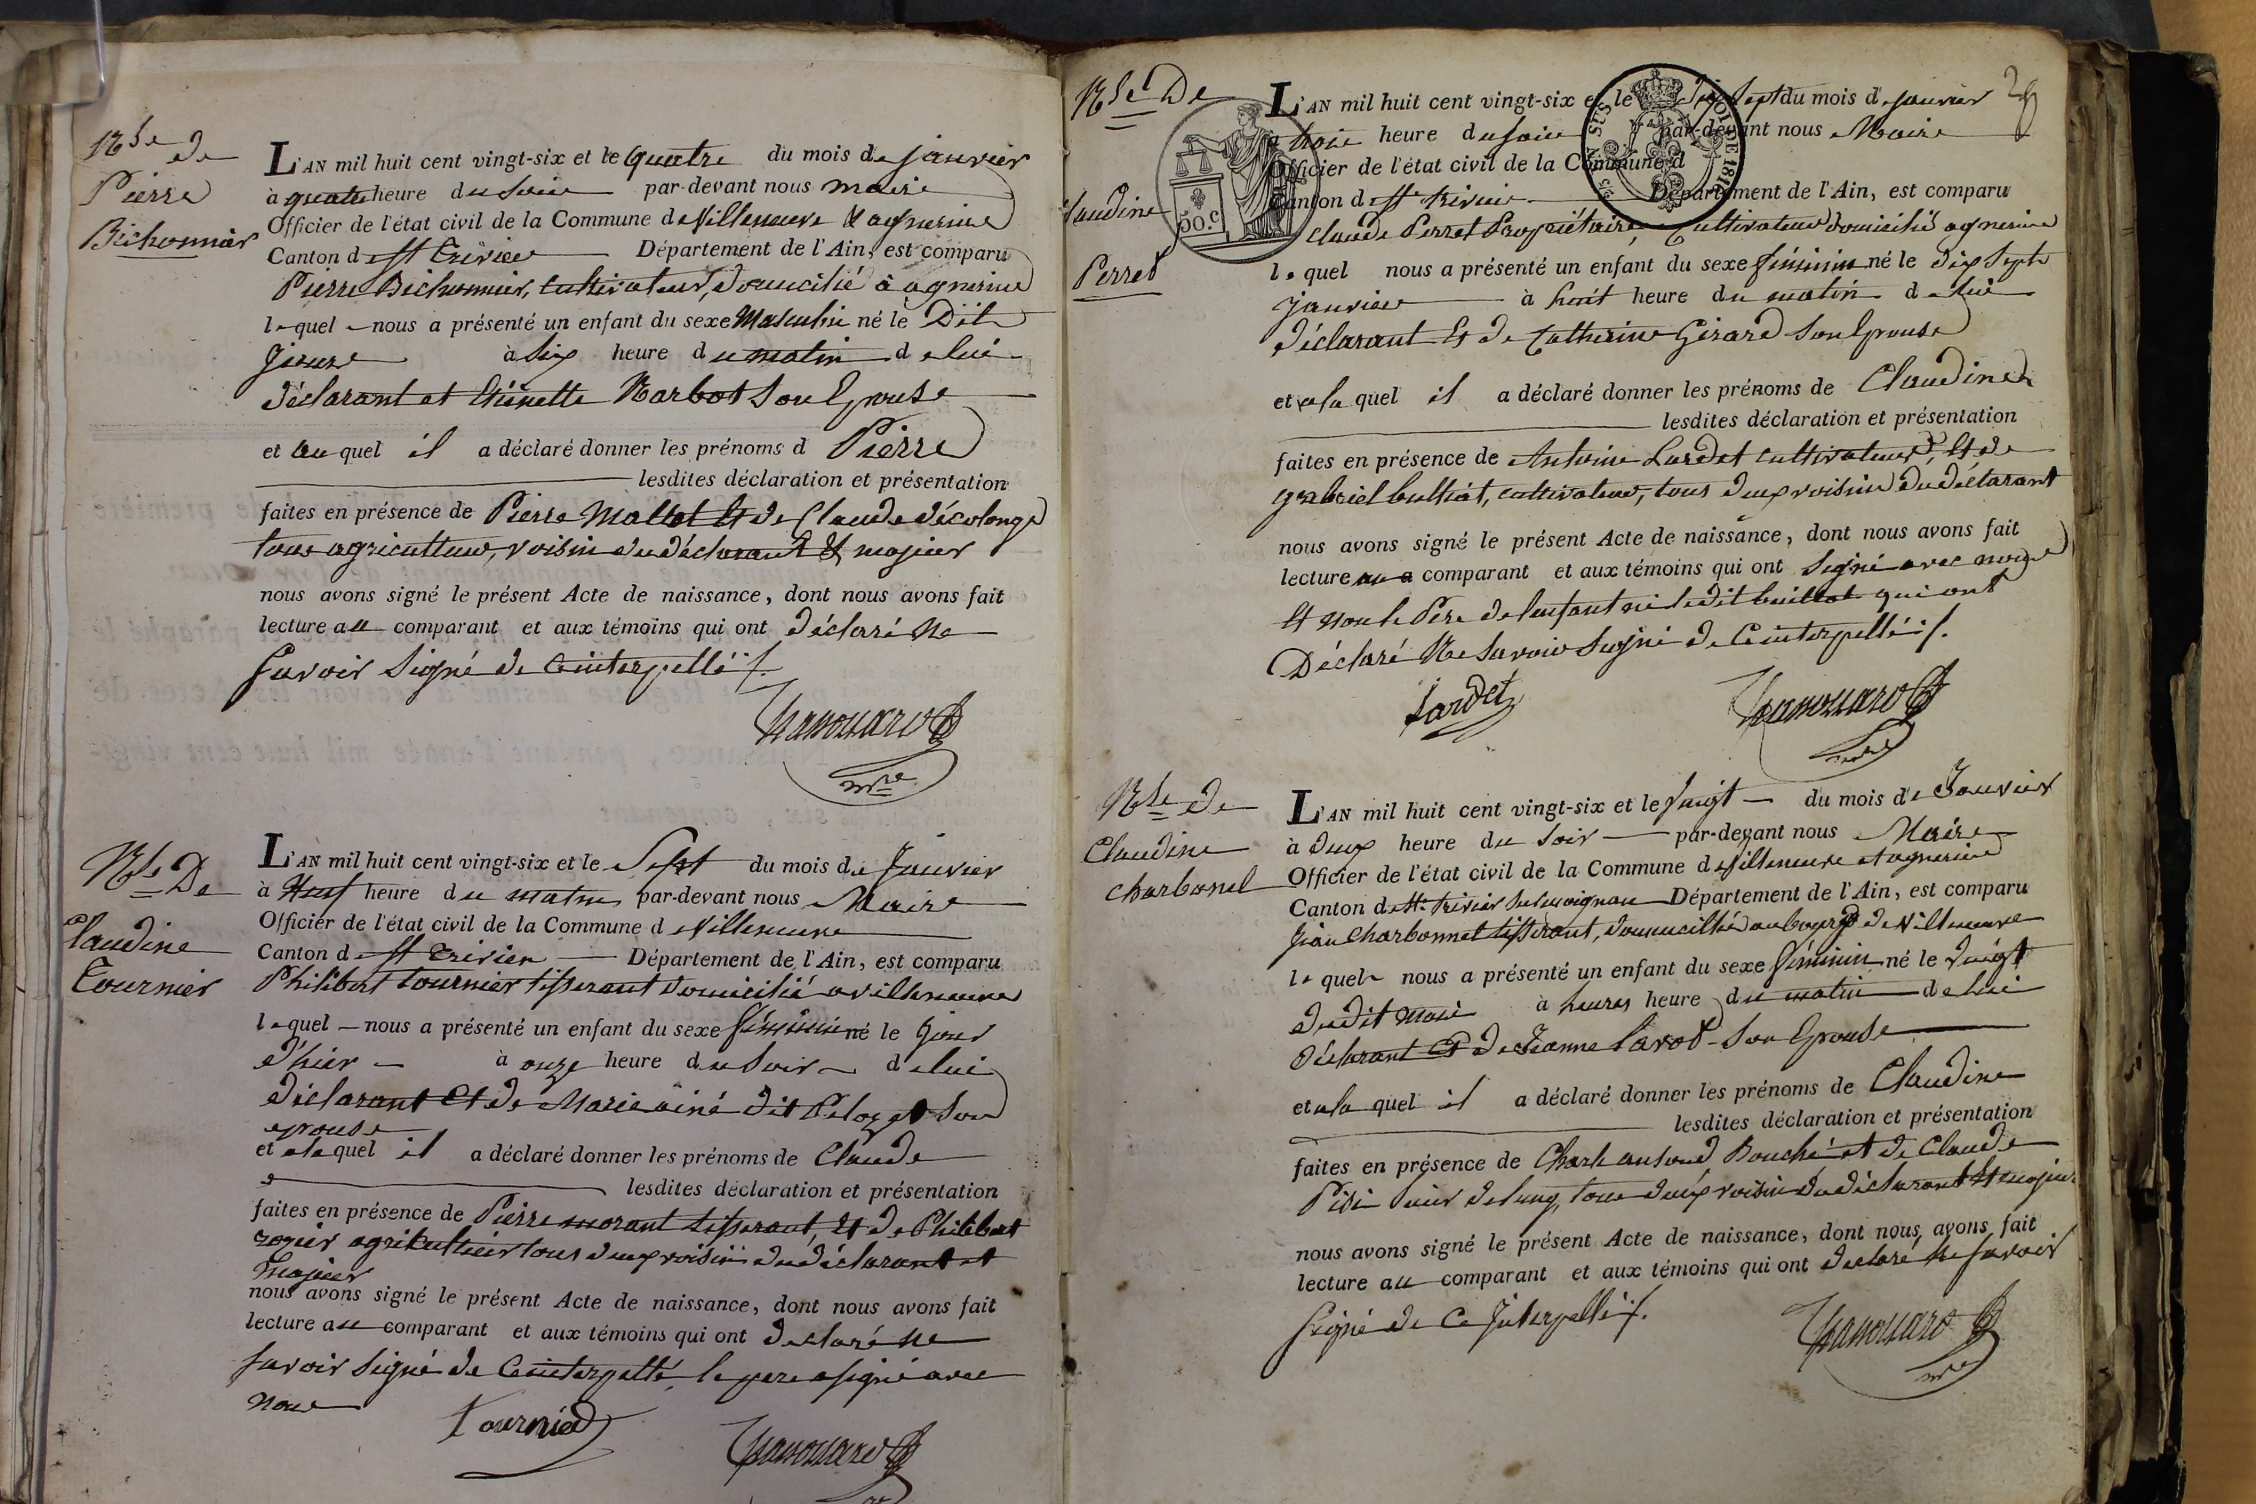 Nce de
Pierre
Bichonnier
L'AN mil huit cent vingt-six et le quatre du mois de janvier
à quatre heure du soir par-devant nous maire
Officier de l'état civil de la Commune de Villeneuve & agnerine
Canton de St trivier Département de l'Ain, est comparu
Pierre Bichonnier, Cultivateur, domicilié à agnerine
lequel nous a présenté un enfant du sexe Masculin né le Dit
jour à Six heure du matin de lui
déclarant et Etienette Narbot Son Epouse
et au quel il a déclaré donner les prénoms d Pierre
lesdites déclaration et présentation
faites en présence de Pierre Mallet Et de Claude décolonge
tous agriculteur, voisin du déclarant & majeur
nous avons signé le présent Acte de naissance, dont nous avons fait
lecture au comparant et aux témoins qui ont déclaré Ne
Savoir Signé de Ce interpellé ./.
Chanouard
mre
Nce De
Claudine
Tournier
L'AN mil huit cent vingt-six et le Sept du mois de Janvier
à Neuf heure du matin par-devant nous Maire
Officier de l'état civil de la Commune de Villeneuve
Canton de St trivier Département de l'Ain, est comparu
Philibert tournier tisserant domicilié a villeneuve
lequel nous a présenté un enfant du sexe féminin né le Jour
d'hier à onze heure du Soir de lui
déclarant Et de Marie ainé dit Pelozet Son
epouse
et a la quel il a déclaré donner les prénoms de Claude
lesdites déclaration et présentation
faites en présence de Pierre morant tisserant, Et de Philibert
rogier agriculteur tous deux voisin du déclarant et
Majeur
nous avons signé le présent Acte de naissance, dont nous avons fait
lecture au comparant et aux témoins qui ont declaré ne
savoir Signé de Ce interpellé le pere a signé avec
nous
Tournier
Chanouard
Nce De
Claudine
Perret
50.c
L'AN mil huit cent vingt-six et le dix Sept du mois de Janvier
à trois heure du soir par-devant nous Maire
Officier de l'état civil de la Commune d
Canton de St trivier Département de l'Ain, est comparu
Claude Perret Propriétaire Cultivateur domicilié agnerine
lequel nous a présenté un enfant du sexe féminin né le dix Sept
janvier à huit heure du matin de lui
déclarant Et de Catherine Girard Son Epouse
et a la quel il a déclaré donner les prénoms de Claudine
lesdites déclaration et présentation
faites en présence de Antoine Lardet cultivateur, Et de
gabriel bulliat, cultivateur, tous deux voisin du déclarant
nous avons signé le présent Acte de naissance, dont nous avons fait
lecture au comparant et aux témoins qui ont Signé avec nous
Et non le Pere de l'enfant ni ledit qui ont
Déclaré Ne Savoir Signé de Ce interpellé ./.
Lardet
Chanouard
Nce de
Claudine
Charbonel
L'AN mil huit cent vingt-six et le Vingt du mois de Janvier
à deux heure du Soir par-devant nous Maire
Officier de l'état civil de la Commune de Villeneuve et agnerine
Canton de St trivier Sur moignan Département de l'Ain, est comparu
Jean Charbonnet tisserant, domicilié au bourg de Villeneuve
lequel nous a présenté un enfant du sexe féminin né le Vingt
dudit mois à heures heure du matin de lui
déclarant Et de Jeanne Savot Son Epouse
et a la quel il a déclaré donner les prénoms de Claudine
lesdites déclaration et présentation
faites en présence de Bouché et de Claude
tous deux voisin du déclarant Et majeur
nous avons signé le présent Acte de naissance, dont nous avons fait
lecture au comparant et aux témoins qui ont declaré Ne Savoir
Signé de Ce Interpellé ./.
Chanouard
mre